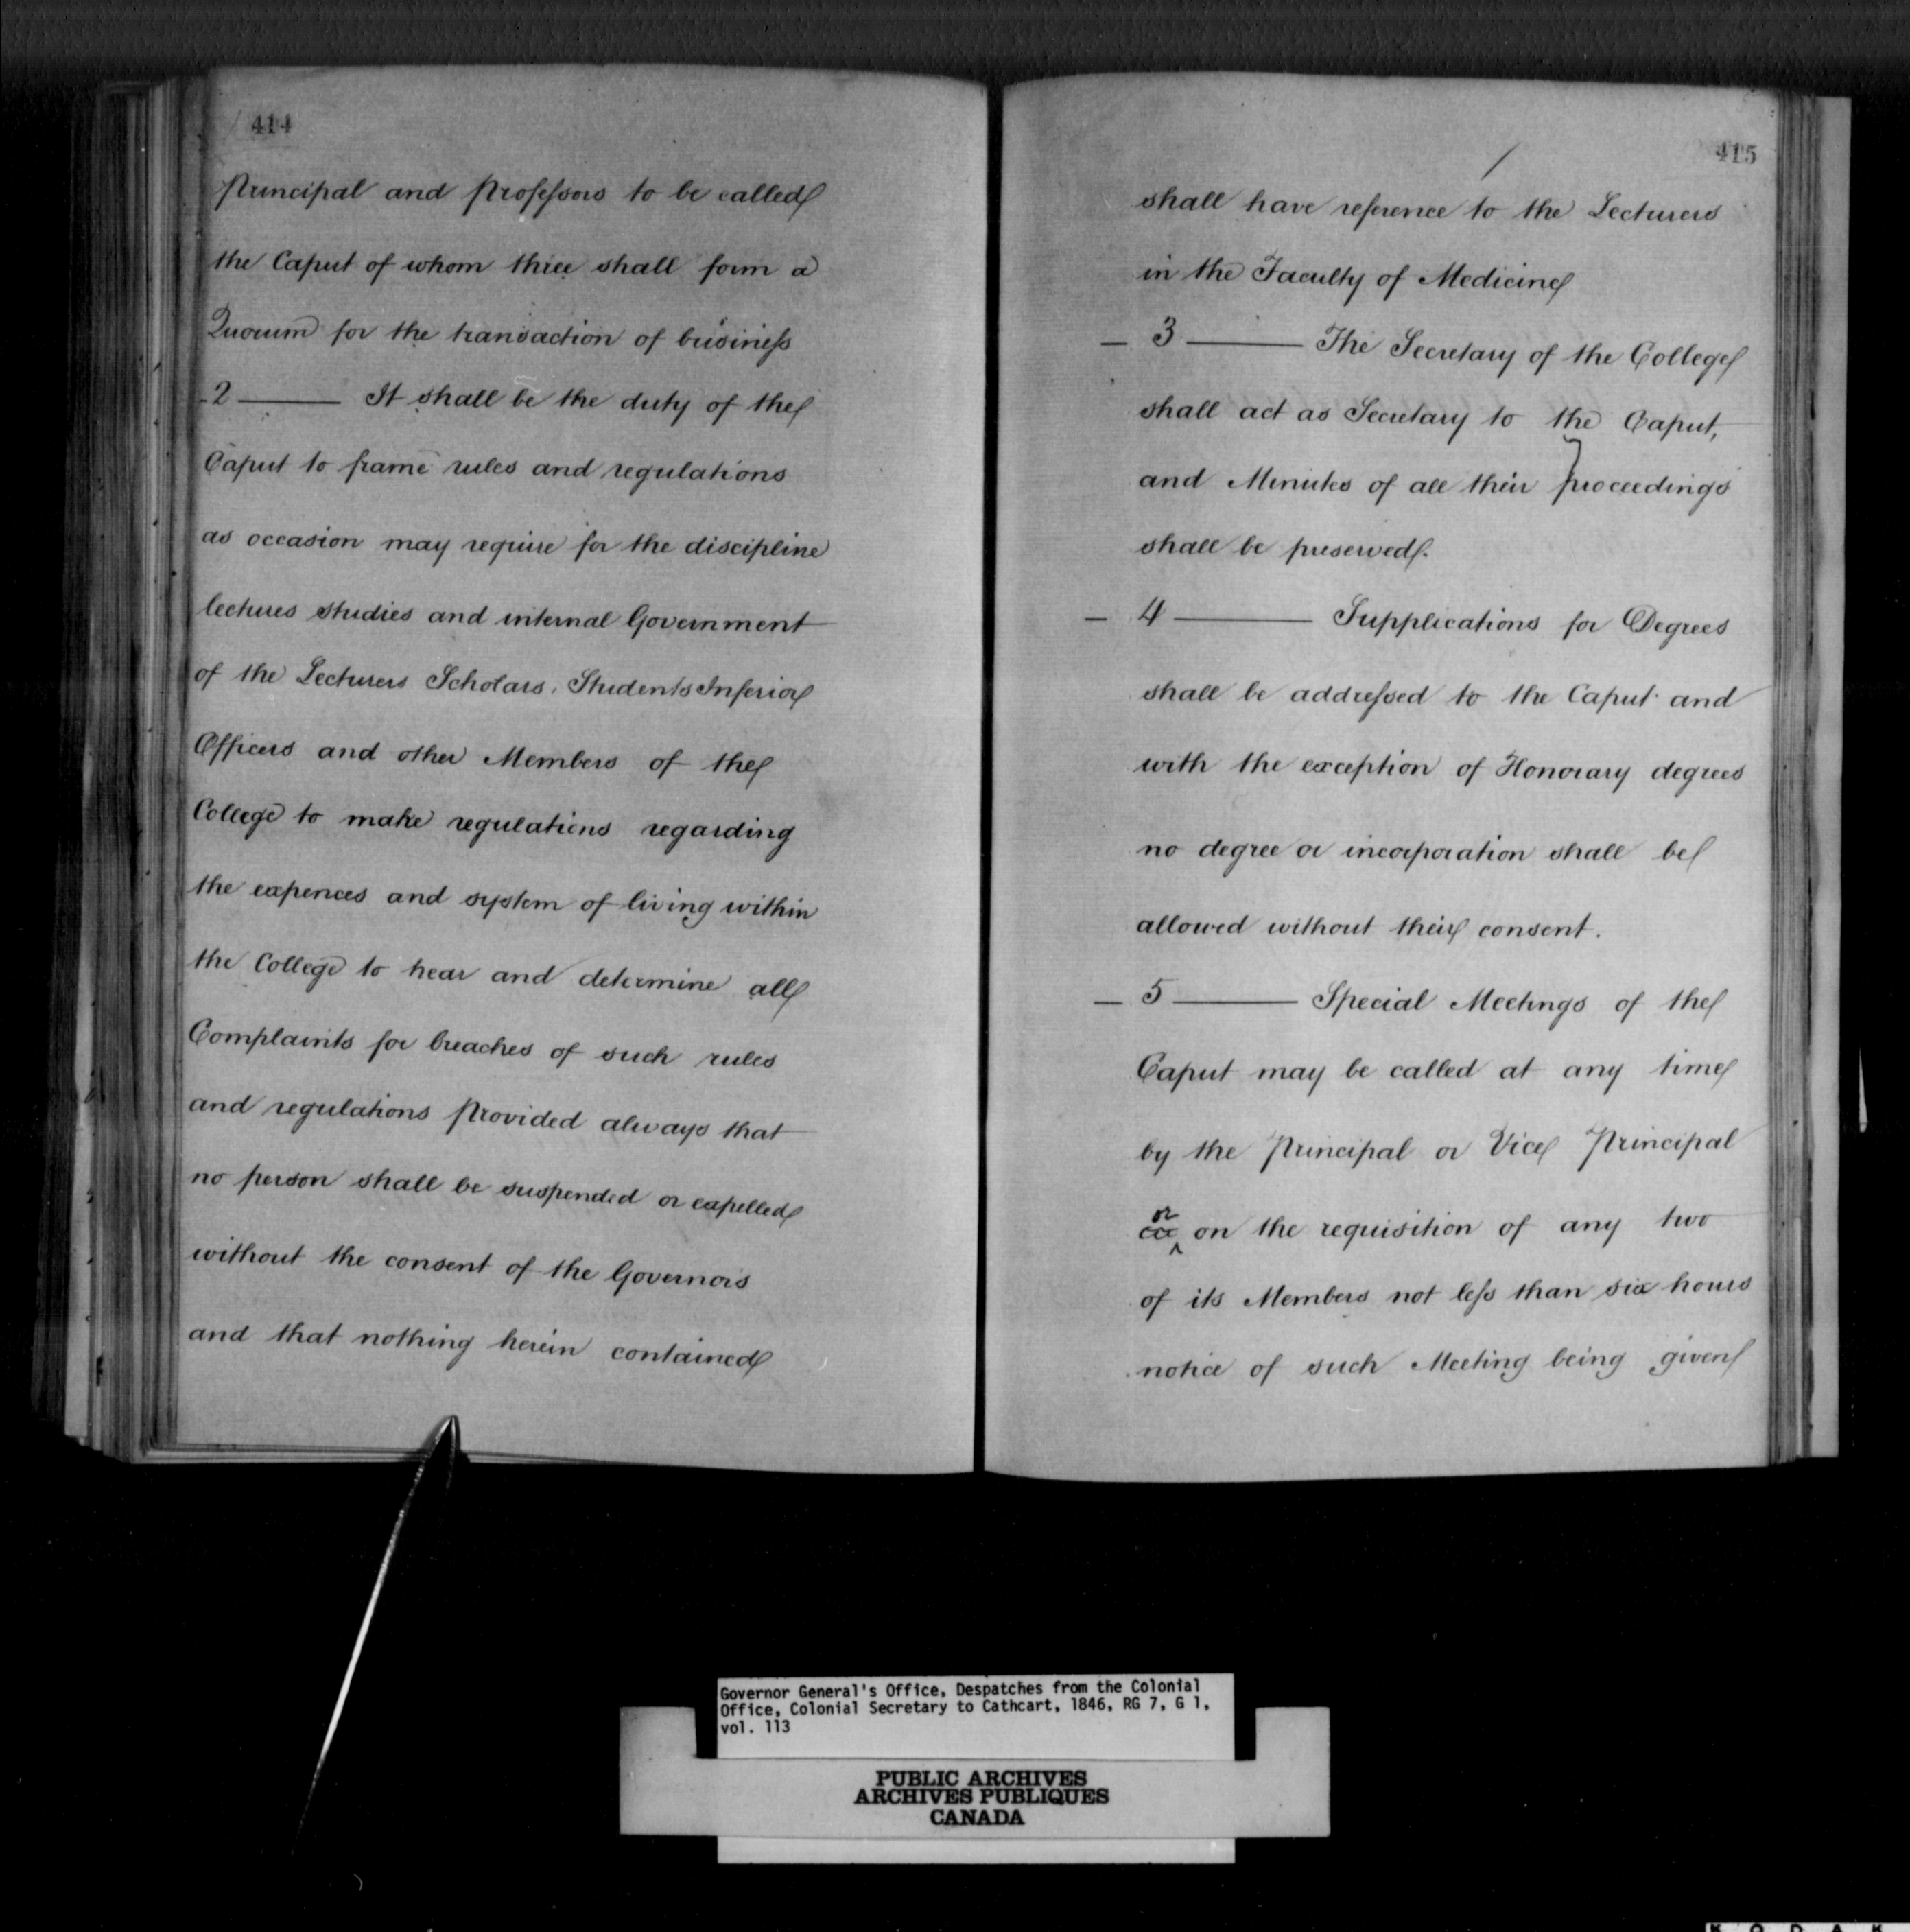 414
Principal and Professors to be called
the Caput of whom three shall form a
Quorum for the transaction of business
2 —— It shall be the duty of the
Caput to frame rules and regulations
as occasion may require for the discipline
lectures studies and internal Government
of the Lecturers Scholars, Students Inferior
Officers and other Members of the
College to make regulations regarding
the expences and system of living within
the College to hear and determine all
Complaints for breaches of such rules
and regulations Provided always that
no person shall be suspended or expelled
without the consent of the Governors
and that nothing herein contained
415
shall have reference to the Lecturers
in the Faculty of Medicine
— 3 —— The Secretary of the College
shall act as Secretary to the Caput,
and Minutes of all their proceedings
shall be preserved.
— 4 —— Supplications for Degrees
shall be addressed to the Caput and
with the exception of Honorary degrees
no degree or incorporation shall be
allowed without their consent.
— 5 —— Special Meetings of the
Caput may be called at any time
by the Principal or Vice Principal
or on the requisition of any two
of its Members not less than six hours
notice of such Meeting being given
Governor General's Office, Despatches from the Colonial
Office, Colonial Secretary to Cathcart, 1846, RG 7, G 1,
vol. 113
PUBLIC ARCHIVES
ARCHIVES PUBLIQUES
CANADA
KODAK